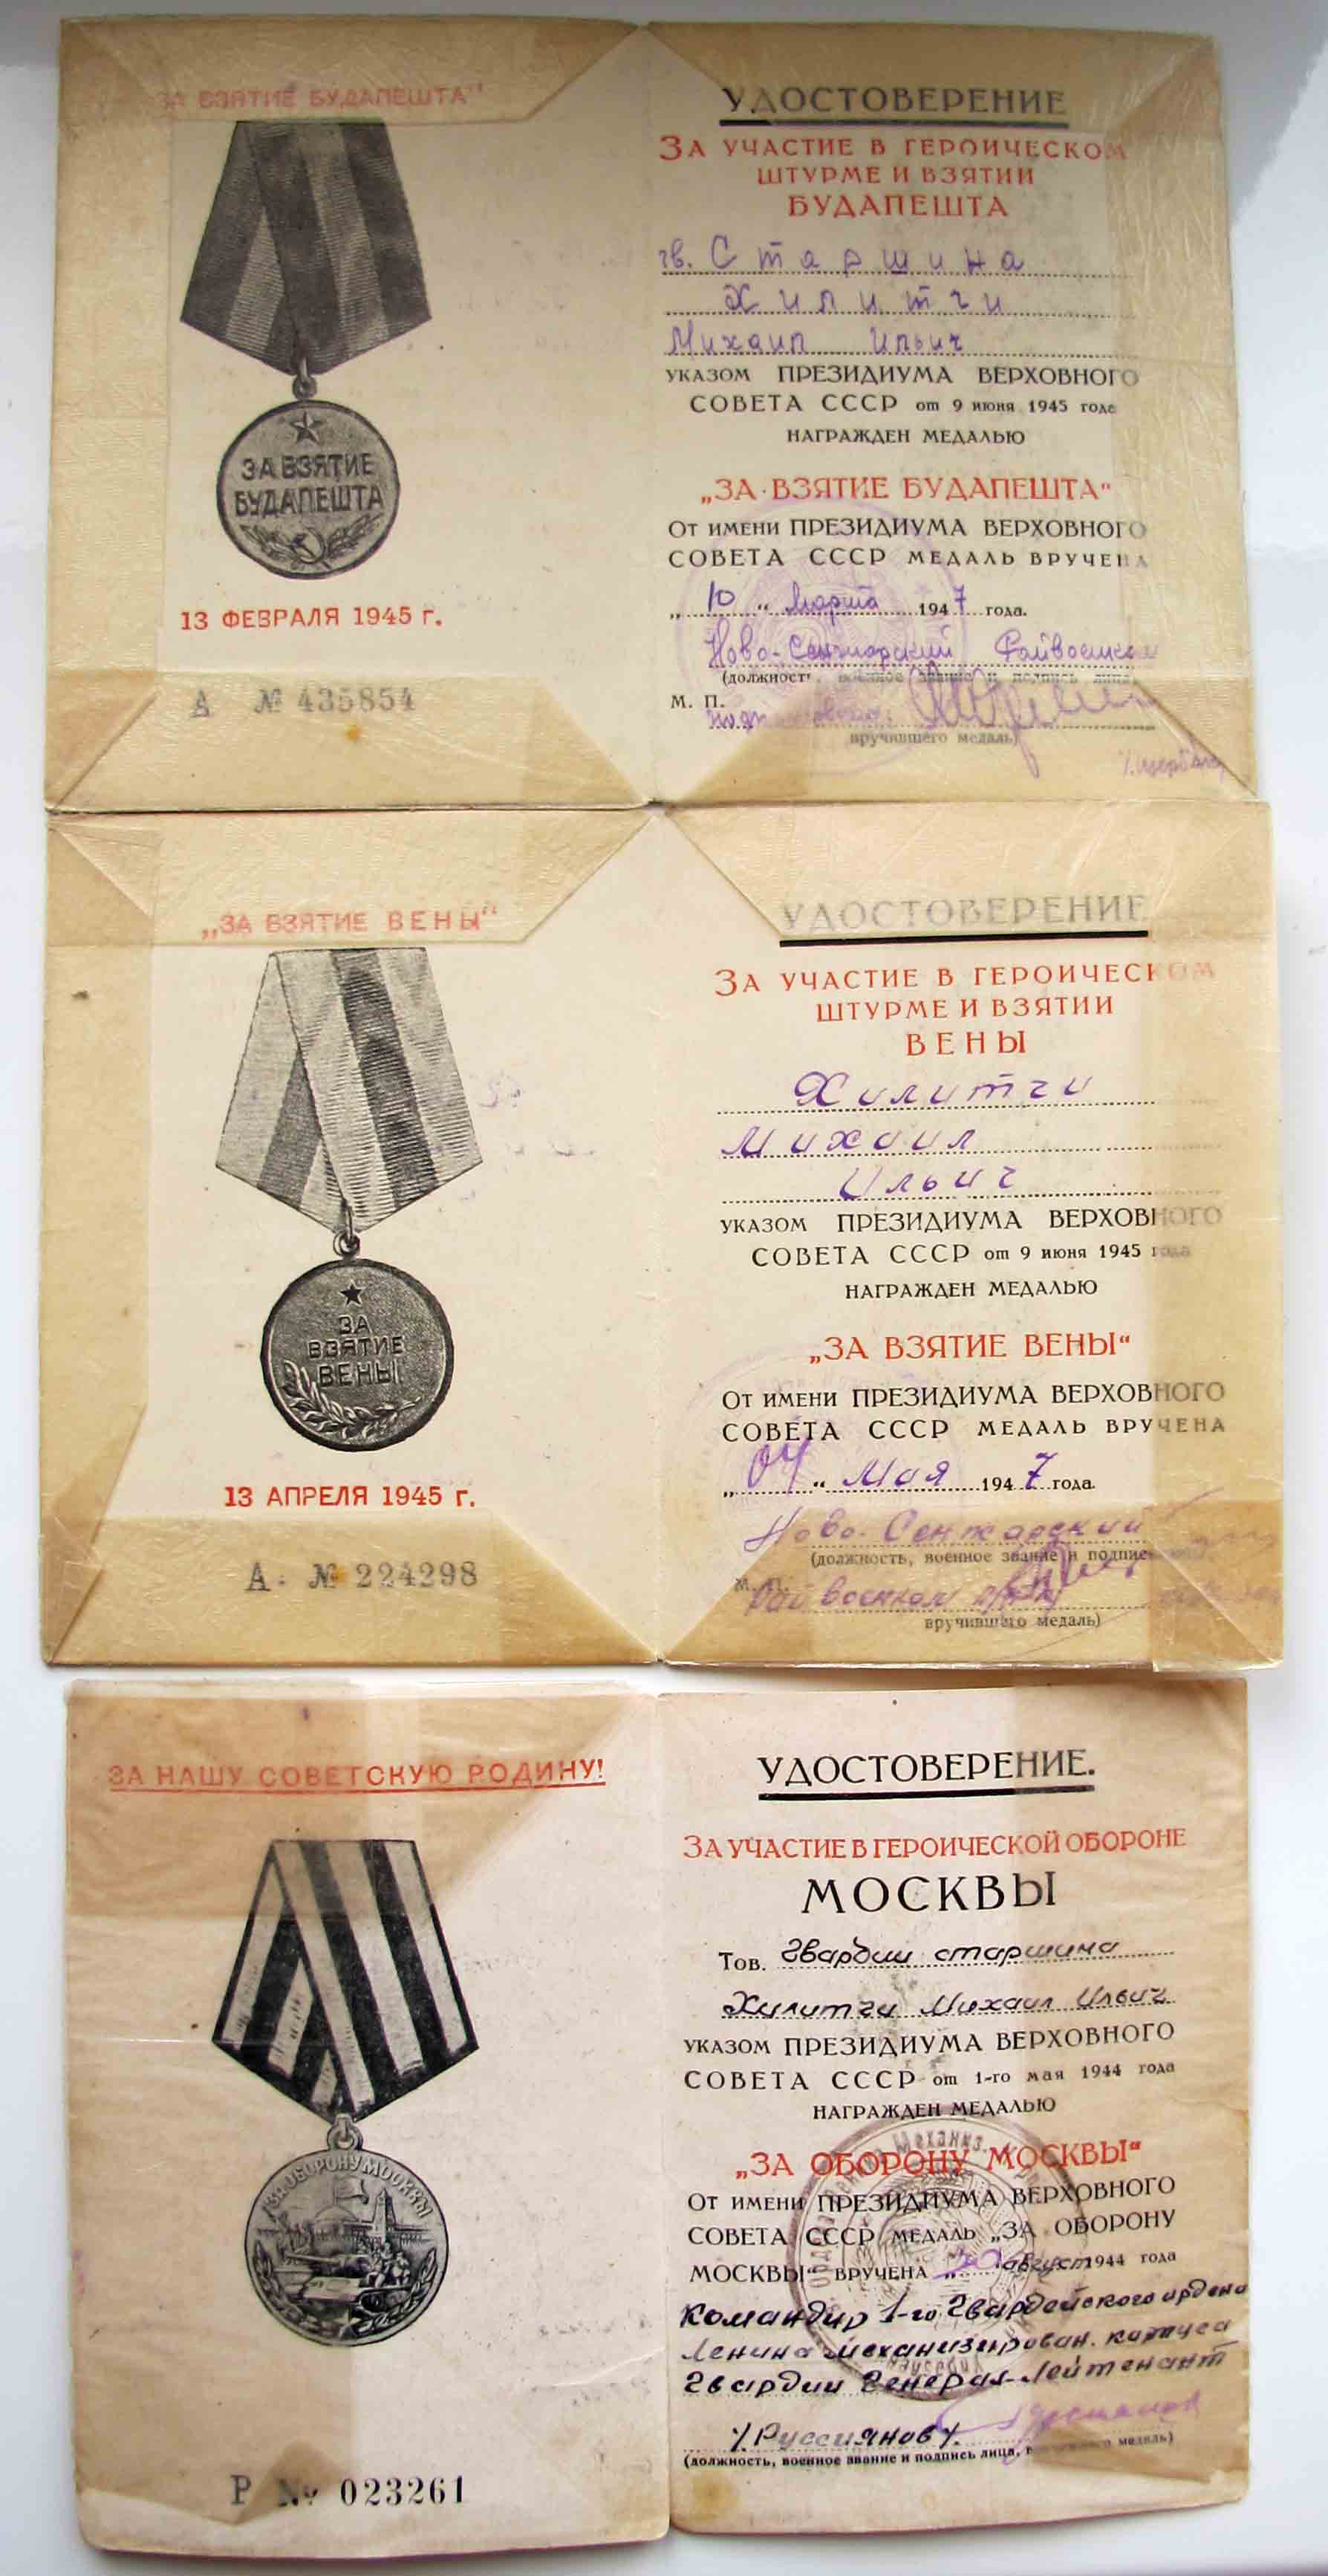 "ЗА ВЗЯТИЕ БУДАПЕШТА"
ЗА ВЗЯТИЕ
БУДАПЕШТА
13 ФЕВРАЛЯ 1945 г.
А № 435854
УДОСТОВЕРЕНИЕ
ЗА УЧАСТИЕ В ГЕРОИЧЕСКОМ
ШТУРМЕ И ВЗЯТИИ
БУДАПЕШТА
гв. Старшина
Хилитчи
Михаил Ильич
УКАЗОМ ПРЕЗИДИУМА ВЕРХОВНОГО
СОВЕТА СССР от 9 июня 1945 года
НАГРАЖДЕН МЕДАЛЬЮ
„ЗА ВЗЯТИЕ БУДАПЕШТА"
ОТ ИМЕНИ ПРЕЗИДИУМА ВЕРХОВНОГО
СОВЕТА СССР МЕДАЛЬ ВРУЧЕНА
„10" Марта 1947 года.
Ново-Сенжарский Райвоенком
(должность, военное звание и подпись лица,
М. П.
вручившего медаль)
„ЗА ВЗЯТИЕ ВЕНЫ"
ЗА
ВЗЯТИЕ
ВЕНЫ
13 АПРЕЛЯ 1945 г.
А № 224298
УДОСТОВЕРЕНИЕ
ЗА УЧАСТИЕ В ГЕРОИЧЕСКОМ
ШТУРМЕ И ВЗЯТИИ
ВЕНЫ
Хилитчи
Михаил
Ильич
УКАЗОМ ПРЕЗИДИУМА ВЕРХОВНОГО
СОВЕТА СССР от 9 июня 1945 года
НАГРАЖДЕН МЕДАЛЬЮ
„ЗА ВЗЯТИЕ ВЕНЫ"
ОТ ИМЕНИ ПРЕЗИДИУМА ВЕРХОВНОГО
СОВЕТА СССР МЕДАЛЬ ВРУЧЕНА
„04" Мая 1947 года.
Ново-Сенжарский
(должность, военное звание и подпись
М. П.
Райвоенком
вручившего медаль)
ЗА НАШУ СОВЕТСКУЮ РОДИНУ!
ЗА ОБОРОНУ МОСКВЫ
Р № 023261
УДОСТОВЕРЕНИЕ.
ЗА УЧАСТИЕ В ГЕРОИЧЕСКОЙ ОБОРОНЕ
МОСКВЫ
Тов. Гвардии старшина
Хилитчи Михаил Ильич
УКАЗОМ ПРЕЗИДИУМА ВЕРХОВНОГО
СОВЕТА СССР от 1-го мая 1944 года
НАГРАЖДЕН МЕДАЛЬЮ
„ЗА ОБОРОНУ МОСКВЫ"
ОТ ИМЕНИ ПРЕЗИДИУМА ВЕРХОВНОГО
СОВЕТА СССР МЕДАЛЬ „ЗА ОБОРОНУ
МОСКВЫ" ВРУЧЕНА август 1944 года
Командир 1-го Гвардейского ордена
Ленина механизирован. корпуса
Гвардии Генерал-Лейтенант
/Руссиянов/.
(должность, военное звание и подпись лица, вручившего медаль)